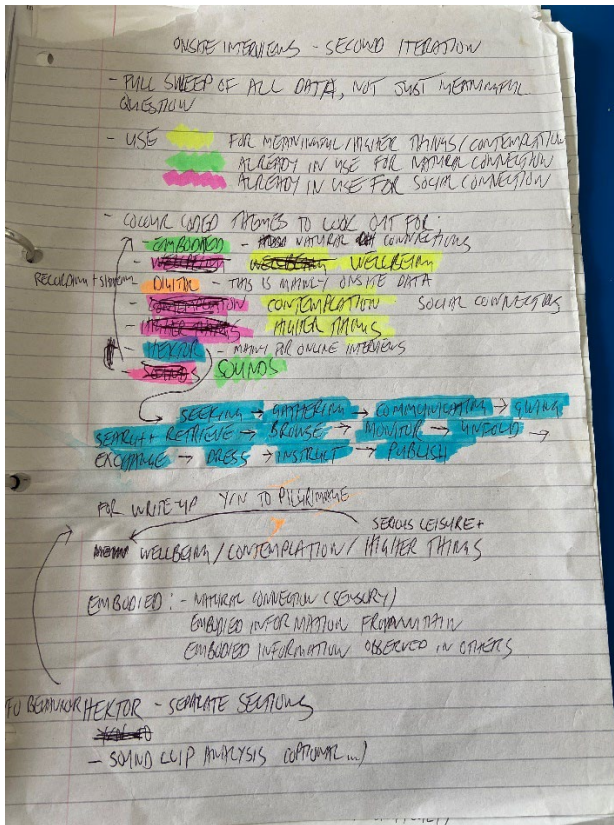 ONSITE INTERVIEWS - SECOND ITERATION
- FULL SWEEP OF ALL DATA, NOT JUST MEANINGFUL
QUESTION
- USE FOR MEANINGFUL/HIGHER THINGS/CONTEMPLATION
ALREADY IN USE FOR NATURAL CONNECTION
ALREADY IN USE FOR SOCIAL CONNECTION
- COLOUR CODED THEMES TO LOOK OUT FOR:
- EMBODIED - NATURAL CONNECTIONS
- WELLBEING WELLBEING WELLBEING
RECORDING + SHARING DIGITAL - THIS IS MAINLY ONSITE DATA
- CONTEMPLATION CONTEMPLATION SOCIAL CONNECTIONS
- HIGHER THINGS HIGHER THINGS
- HEKTOR - MAINLY FOR ONLINE INTERVIEWS
- SOUNDS SOUNDS
SEEKING → GATHERING → COMMUNICATING → GIVING
SEARCH + RETRIEVE → BROWSE → MONITOR → UNFOLD →
EXCHANGE → DRESS → INSTRUCT → PUBLISH
FOR WRITE-UP Y/N TO PILGRIMAGE
SERIOUS LEISURE +
WELLBEING / CONTEMPLATION / HIGHER THINGS
EMBODIED: - NATURAL CONNECTION (SENSORY)
EMBODIED INFORMATION FROM
EMBODIED INFORMATION OBSERVED IN OTHERS
BEHAVIOUR HEKTOR - SEPARATE SECTIONS
- SOUND CLIP ANALYSIS (OPTIONAL...)